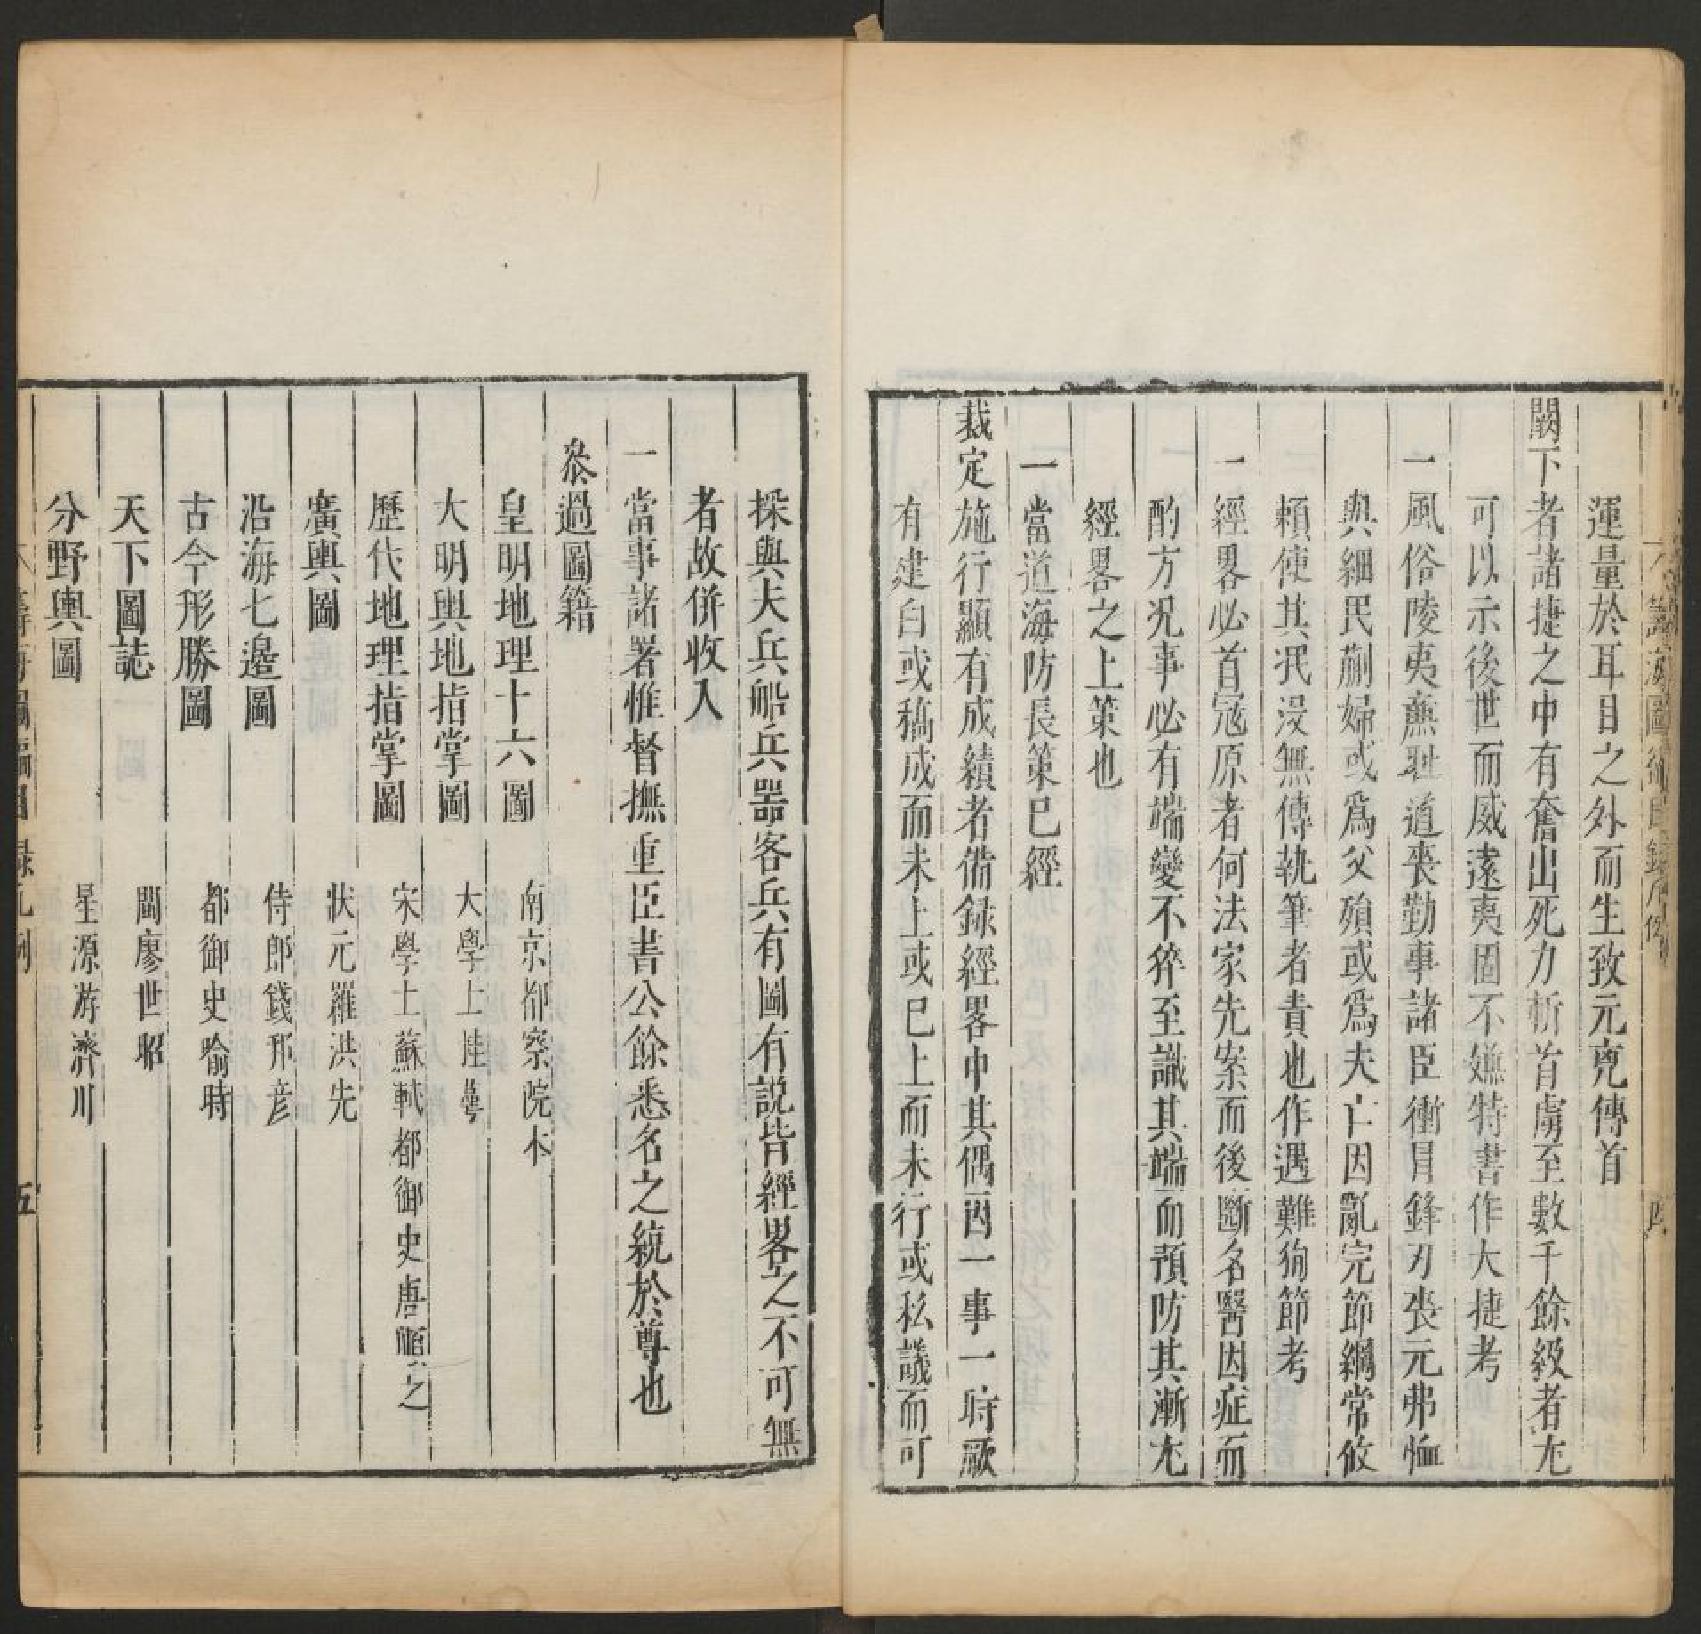 運量於耳目之外而生致元兇傳首
闕下者諸捷之中有奮出死力斬首虜至數千餘級者尤
可以示後世而威遠夷固不嫌特書作大捷考
一風俗陵夷廉耻道喪勤事諸臣衝冐鋒刃喪元弗恤
與細民蒯婦或爲父殞或爲夫亡因亂完節綱常攸
賴使其泯没無傳執筆者責也作遇難狥節考
一經畧必首冦原者何法家先案而後斷名醫因症而
酌方况事必有端變不猝至識其端而預防其漸尤
經畧之上策也
一當道海防長策已經
裁定施行顯有成績者備録經畧中其偶因一事一時厥
有建白或稿成而未上或已上而未行或私議而可
採與夫兵船兵噐客兵有圖有説皆經畧之不可無
者故併收入
一當事諸署惟督撫重臣書公餘悉名之統於尊也
叅過圖籍
皇明地理十六圖 南京都察院本
大明輿地指掌圖 大學士桂萼
歷代地理指掌圖 宋學士蘇軾都御史唐順之
廣輿圖 狀元羅洪先
沿海七邊圖 侍郎錢邦彦
古今形勝圖 都御史喻時
天下圖誌 閩廖世昭
分野輿圖 星源游濟川
五